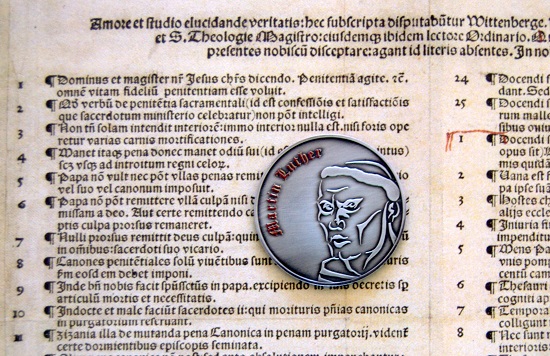 Amore et studio elucidande veritatis: hec subscripta disputabũtur Wittenberge.
et S. Theologie Magistro: eiusdemq; ibidem lectore Ordinario.
presentes nobiscũ disceptare: agant id literis absentes. In no
1 ¶Dominus et magister nr̃ Jesus chr̃s dicendo. Penitentiã agite. ⁊c̃.
omnẽ vitam fideliũ penitentiam esse voluit.
2 ¶Qd̃ verbũ de penitẽtia sacramentali (id est confessiõis et satisfactiõis
que sacerdotum ministerio celebratur) non põt intelligi.
3 ¶Non tñ solam intendit interiorẽ: immo interior nulla est. nisi foris ope
retur varias carnis mortificationes.
4 ¶Manet itaq; pena donec manet odiũ sui (id es
scz vsq; ad introitum regni celorum.
5 ¶Papa nõ vult nec põt vllas penas remi
vel suo vel canonum imposuit.
6 ¶Papa nõ põt remittere vllã culpã nisi
missam a deo. Aut certe remittendo ca
ptis culpa prorsus remaneret.
7 ¶Nulli prorsus remittit deus culpã: quin
in omnibus: sacerdoti suo vicario.
8 ¶Canones penitẽtiales solũ viuẽtibus sunt
eosd em debet imponi.
9 ¶Inde bñ nobis facit spũssctũs in papa. excipiendo in suis decretis sp
articulũ mortis et necessitatis.
10 ¶Indocte et male faciũt sacerdotes ii: qui morituris pñias canonicas
in purgatorium reseruant.
11 ¶Zizania illa de mutanda pena Canonica in penam purgatorij. videnf
certe dormientibus episcopis seminata.
24 ¶Docendi
dant. Sed
25 ¶Docendi
1 ¶Docendi
opus sit)
2
pa ipse su
3 ¶Hostes
alijs eccle
4 ¶Iniuria fit
5
6 ¶Thesauri
cogniti ap
7 ¶Tempora
colligunt
8
Martin Luther